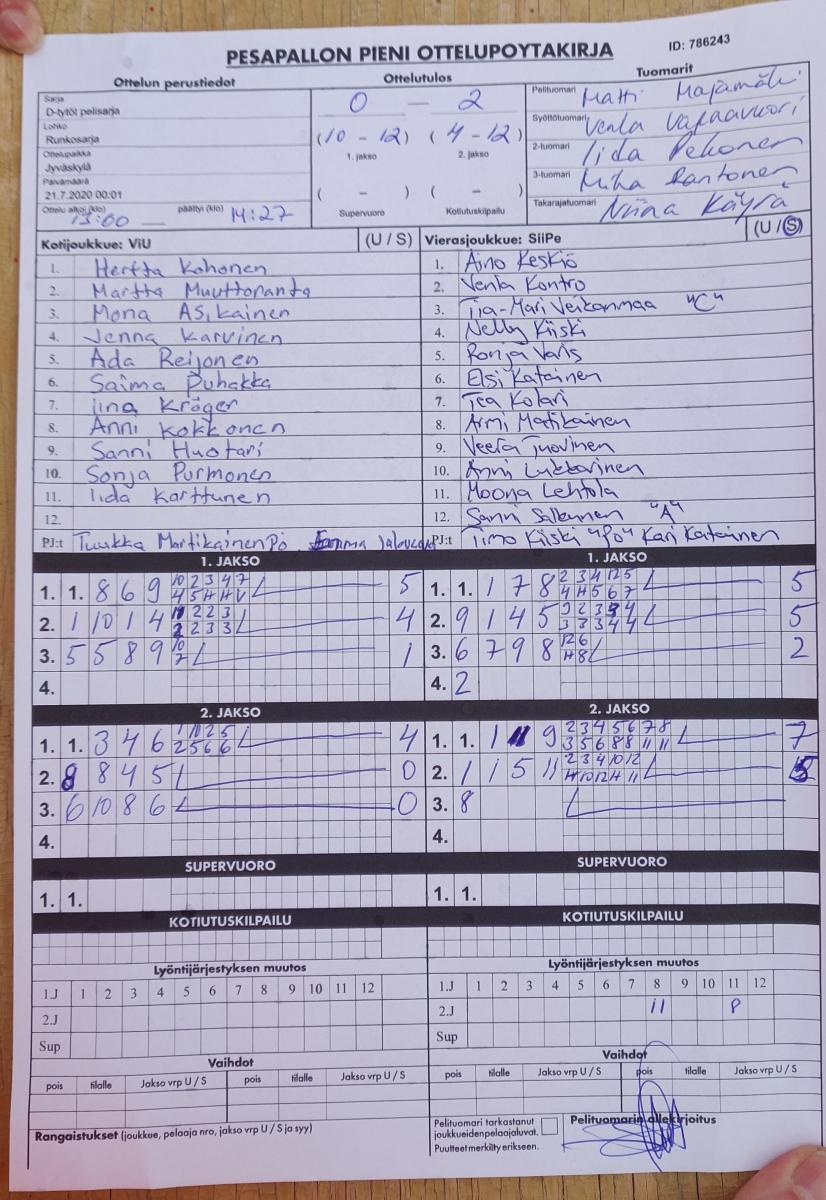 PESAPALLON PIENI OTTELUPOYTAKIRJA
ID: 786243
Ottelun perustiedot
Ottelutulos
Tuomarit
Sarja
D-tytöt pelisarja
Lohko
Runkosarja
Ottelupaikka
Jyväskylä
Päivämäärä
21.7.2020 00:01
Ottelu alkoi (klo) 13:00 päättyi (klo) 14:27
0 — 2
(10 - 12) (4 - 12)
1. jakso 2. jakso
( - ) ( - )
Supervuoro Kotiutuskilpailu
Pelituomari Matti Majamäki
Syöttötuomari Venla Vapaavuori
2-tuomari Iida Pekonen
3-tuomari Miha Rantonen
Takarajatuomari Niina Käyrä
Kotijoukkue: ViU (U / S)
1. Hertta Kohonen
2. Martta Muuttoranta
3. Mona Asikainen
4. Jenna Karvinen
5. Ada Reijonen
6. Saima Puhakka
7. Iina Kröger
8. Anni Kokkonen
9. Sanni Huotari
10. Sonja Purmonen
11. Iida Karttunen
12.
PJ:t Tuukka Martikainen PÖ
Vierasjoukkue: SiiPe (U / S)
1. Aino Keskiö
2. Venla Kontro
3. Tia-Mari Veikanmaa "C"
4. Nelly Kiiski
5. Ronja Varis
6. Elsi Katainen
7. Tea Kolari
8. Armi Matikainen
9. Veera Tuovinen
10. Anni Lukkarinen
11. Moona Lehtola
12. Sanni Salkunen "A"
PJ:t Timo Kiiski "PÖ" Kari Katainen
1. JAKSO
1. 1. 8 6 9 10 2 3 4 7 5
4 5 H H V
2. 1 10 1 4 1 2 2 3 4
2 2 3 3
3. 5 5 8 9 10 1
7
4.
1. JAKSO
1. 1. 1 7 8 2 3 4 12 5 5
4 H 5 6 7
2. 9 1 4 5 5
3 3 3 4 4
3. 6 7 9 8 12 6 2
H 8
4. 2
2. JAKSO
1. 1. 3 4 6 1 10 2 5 4
2 5 6 6
2. 8 8 4 5 0
3. 6 10 8 6 0
4.
2. JAKSO
1. 1. 1 11 9 2 3 4 5 6 7 8 7
3 5 6 8 8 11 11
2. 1 1 5 11 2 3 4 10 12 5
H 10 12 H 11
3. 8
4.
SUPERVUORO
1. 1.
SUPERVUORO
1. 1.
KOTIUTUSKILPAILU
KOTIUTUSKILPAILU
Lyöntijärjestyksen muutos
1.J 1 2 3 4 5 6 7 8 9 10 11 12
2.J
Sup
Lyöntijärjestyksen muutos
1.J 1 2 3 4 5 6 7 8 9 10 11 12
2.J 11 8
Sup
Vaihdot
pois tilalle Jakso vrp U / S pois tilalle Jakso vrp U / S
Vaihdot
pois tilalle Jakso vrp U / S pois tilalle Jakso vrp U / S
Rangaistukset (joukkue, pelaaja nro, jakso vrp U / S ja syy)
Pelituomari tarkastanut
joukkueidenpelaajaluvat.
Puutteet merkitty erikseen.
Pelituomarin allekirjoitus